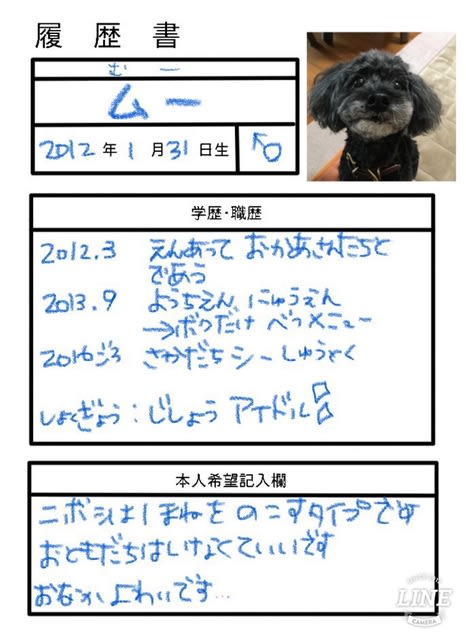 履歴書
むー
ムー
2012年1月31日生 ♂
学歴・職歴
2012.3 えんあって おかあさんたちと
であう
2013.9 ようちえん にゅうえん
→ボクだけ べつメニュー
2016ごろ さかだちシーしゅうとく
しょくぎょう:じしょう アイドル
本人希望記入欄
ニボシはほねをのこすタイプです
おともだちはいなくていいです
おなかよわいです…
LINE
CAMERA